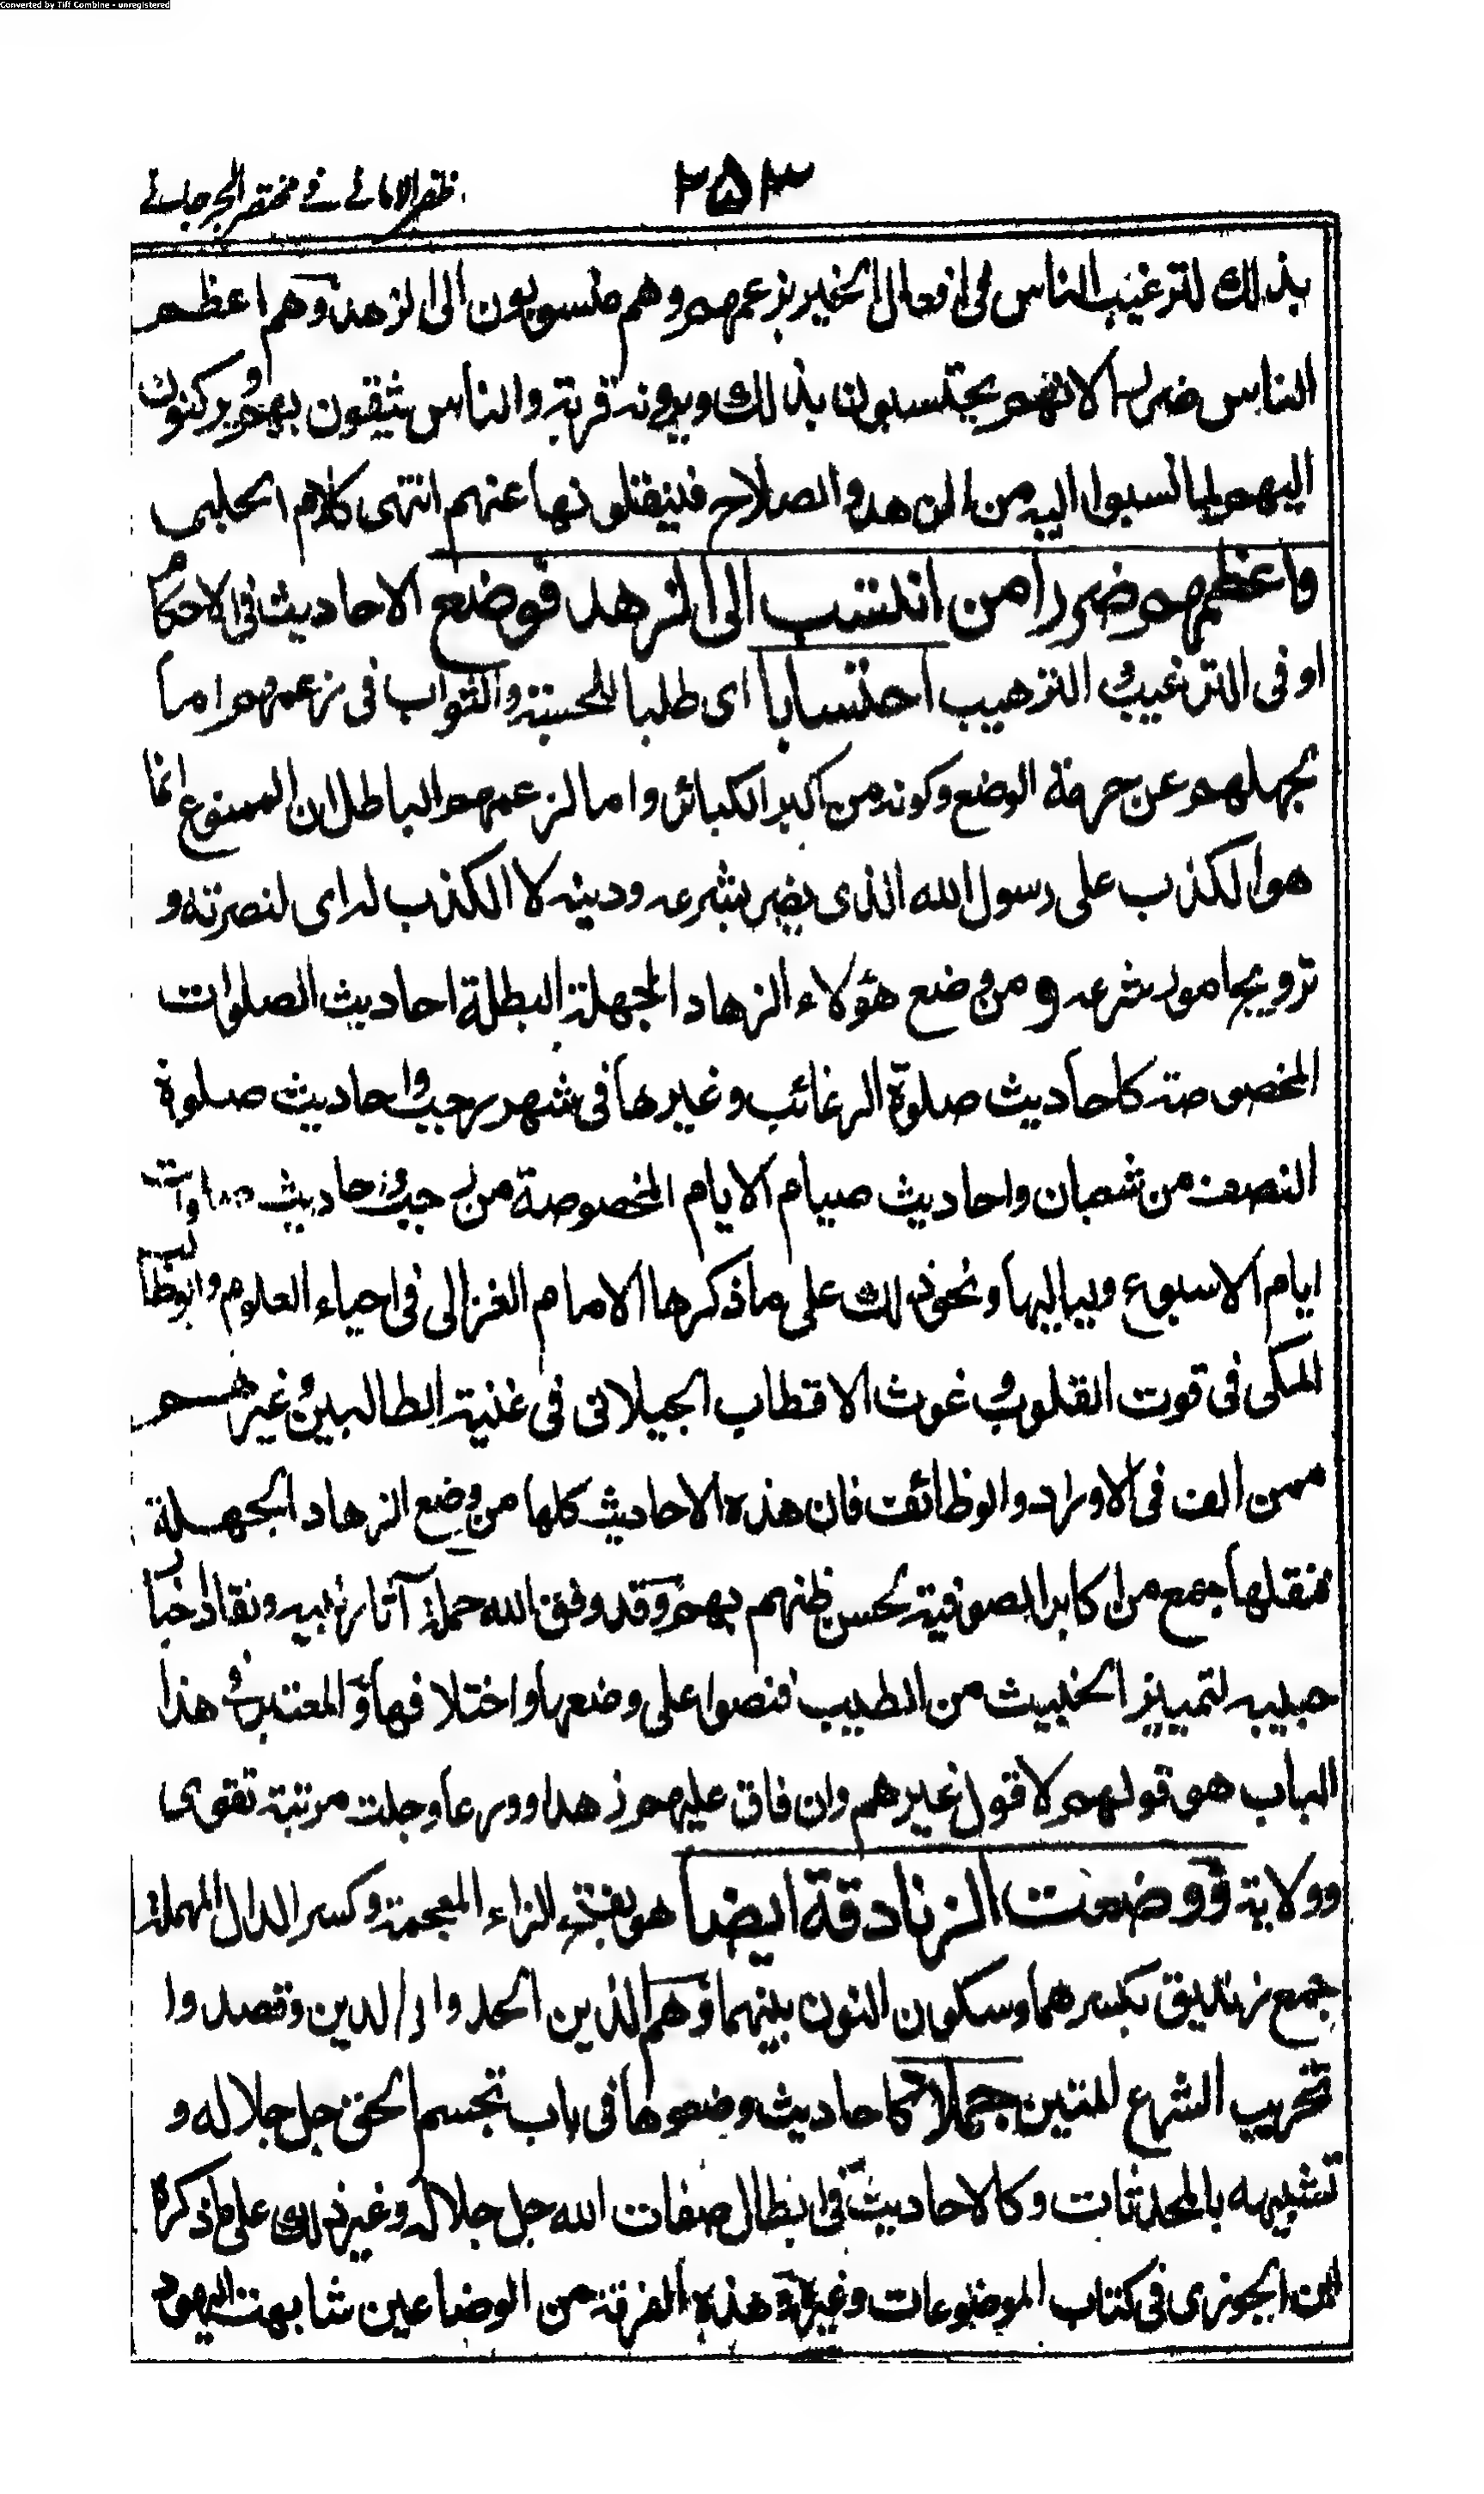 Converted by Tiff Combine - unregistered
ظفر الامانی فی مختصر الجرجانی
۲۵۳
بذلك لترغيب الناس فى افعال الخير بزعمهم وهم منسوبون الى الزهد وهم اعظم
الناس ضررا لانهم يحتسبون بذلك ويرونه قربة والناس يثقون بهم ويركنون
اليهم لما نسبوا اليه من الزهد والصلاح فينقلونها عنهم انتهى كلام الحلبى
واعظمهم ضررا من انتسب الى الزهد فوضع الاحاديث فى الاحكام
او فى الترغيب و الترهيب احتسابا اى طلبا للحسبة والثواب فى زعمهم اما
بجهلهم عن حرمة الوضع وكونه من اكبر الكبائر واما لزعمهم الباطل ان الممنوع انما
هو الكذب على رسول الله الذى يضر بشرعه ودينه لا الكذب له اى لنصرته و
ترويجا مور شرعه ومن وضع هؤلاء الزهاد الجهلة البطلة احاديث الصلوات
المخصوصة كاحاديث صلوة الرغائب وغيرها فى شهر رجب واحاديث صلوة
النصف من شعبان واحاديث صيام الايام المخصوصة من رجب واحاديث صلوات
ايام الاسبوع ولياليها ونحو ذلك على ما ذكرها الامام الغزالى فى احياء العلوم وابوطالب
المكى فى قوت القلوب و غوث الاقطاب الجيلانى فى غنية الطالبين وغيرهم
ممن الف فى الاوراد والوظائف فان هذه الاحاديث كلها من وضع الزهاد الجهلة
فنقلها جمع من اكابر الصوفية لحسن ظنهم بهم وقد وفق الله حملة آثار نبيه ونقاد اخبار
حبيبه لتمييز الخبيث من الطيب فنصوا على وضعها واختلاقها والمعتبر فى هذا
الباب هو قولهم لا قول غيرهم وان فاق عليهم زهدا وورعا وجلت مرتبته تقوى
وولاية ووضعت الزنادقة ايضا هو بفتح الزاء المعجمة وكسر الدال المهملة
جمع زنديق بكسرهما وسكون النون بينهما وهم الذين الحدوا فى الدين وقصدوا
تخريب الشرع المتين جملا كاحاديث وضعوها فى باب تجسم الحق جل جلاله و
تشبيهه بالمحدثات وكالاحاديث فى ابطال صفات الله جل جلاله وغير ذلك على ما ذكره
ابن الجوزى فى كتاب الموضوعات وغيره وهذه الفرقة من الوضاعين شابهت اليهود